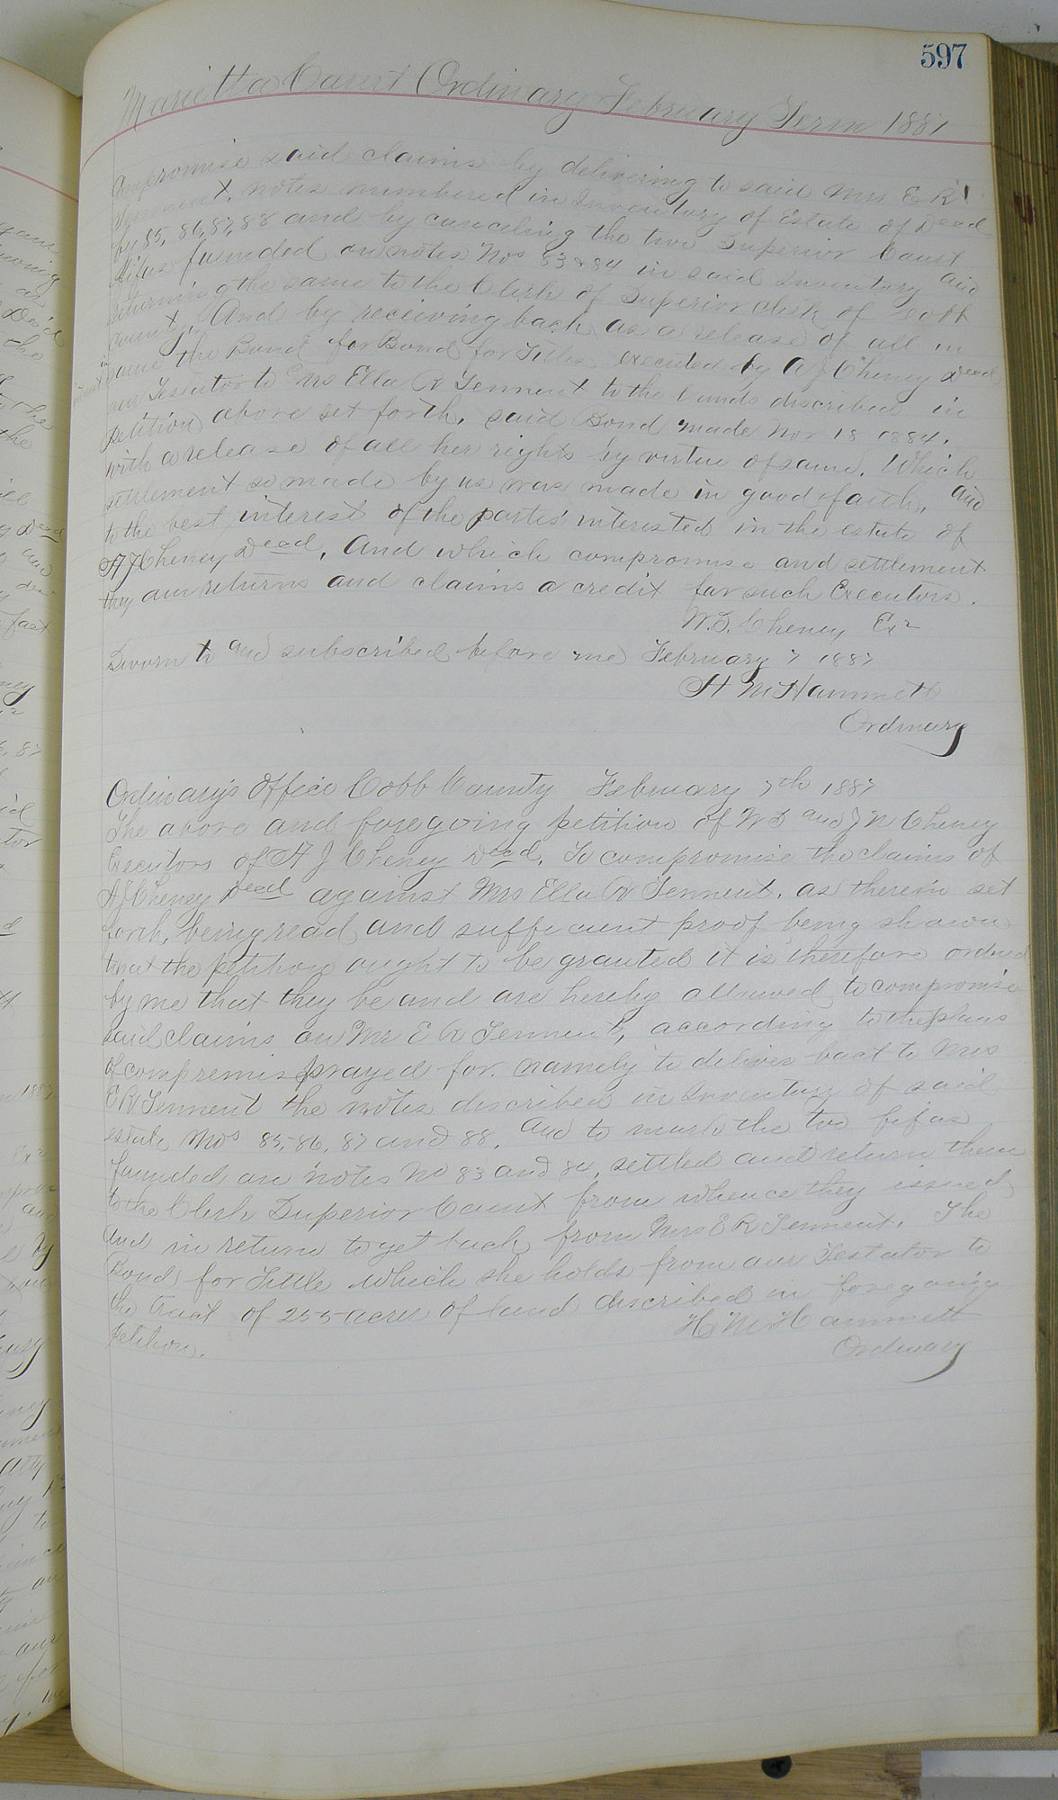 597
Marietta Court Ordinary February Term 1887
Compromise said claims by delivering to said Mrs E R
Tennent, notes numbered in Inventory of Estate of Decd
85, 86, 87, 88 and by canceling the two Superior Court
fifas founded on notes Nos 83 & 84 in said Inventory and
returning the same to the Clerk of Superior Clerk of Cobb
County. And by receiving back as a release of all in
same the Bond for Bond for Titles executed by A J Cheney Decd
our Testator to Mrs Ella R Tennent to the lands discribed in
petition above set forth, said Bond made Nov 18 1884.
with a release of all her rights by virtue of same. Which
settlement so made by us was made in good faith, and
to the best interest of the parties interested in the estate of
A J Cheney Decd, And which compromise and settlement
they our returns and claims a credit for such Executors.
W. S. Cheney Exr
Sworn to and subscribed before me February 7 1887
H M Hammett
Ordinary
Ordinary's Office Cobb County February 7th 1887
The above and foregoing petition of W S and J N Cheney
Executors of A J Cheney Decd, To compromise the claims of
A J Cheney Decd against Mrs Ella R Tennent, as therein set
forth, being read and sufficient proof being shown
that the petition ought to be granted it is therefore ordered
by me that they be and are hereby allowed to compromise
said claims on Mrs E R Tennent, according to the plans
of compremise prayed for namely to deliver back to Mrs
E R Tennent the notes discribed in Inventory of said
estate Nos 85, 86, 87 and 88, and to mark the two fifas
founded on notes No 83 and 84, settled and return them
to the Clerk Superior Court from whence they issued,
and in return to get back from Mrs E R Tennent. The
Bond for Tittle which she holds from our Testator to
the tract of 255 acres of land discribed in foregoing
petition.
H M Hammett
Ordinary